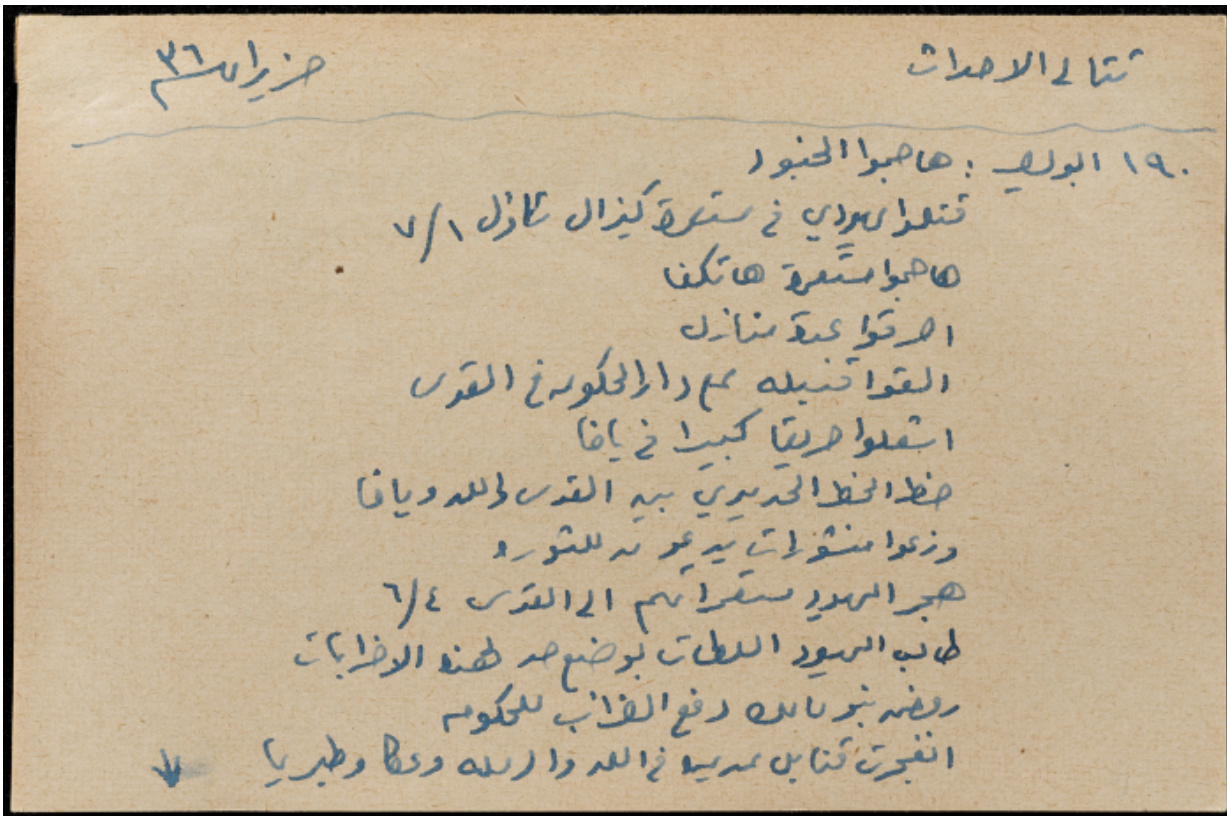 تتالي الاحداث
حزيران ٣٦
١٩٠ البوليس : هاجموا الجنود
قتلوا يهودي في مستعمرة كيزال ٧/١
هاجموا مستعمرة هاتكفا
احرقوا عدة منازل
القوا قنبله على دار الحكومه في القدس
اشعلوا حريقا كبيرا في يافا
الخط الحديدي بين القدس واللد ويافا
وزعوا منشورات يدعون للثوره
هجر اليهود مستعمراتهم الى القدس ٦/٤
طالب اليهود السلطات بوضع حد لهذه الاضرابات
رفض دفع الضرائب للحكومه
انفجرت قنابل عديده في اللد والرمله وعكا وطبريا